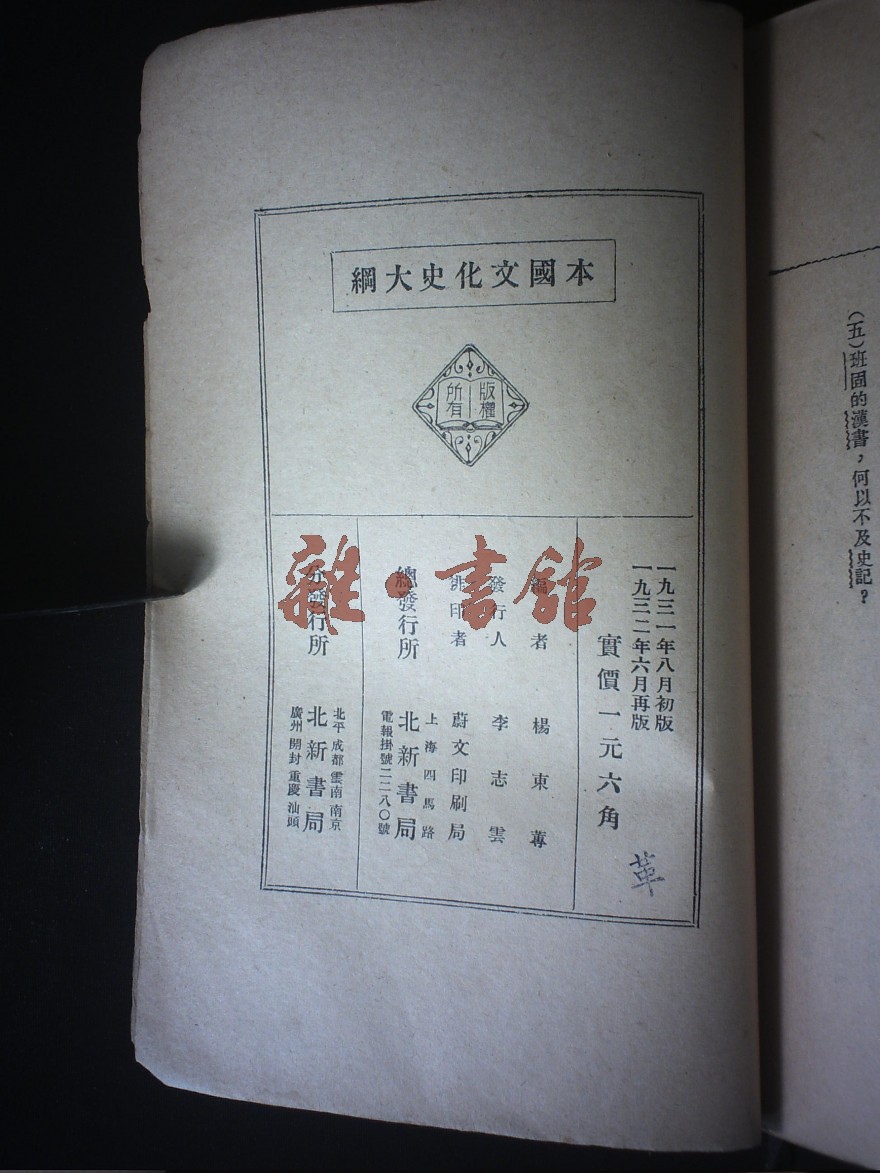 本國文化史大綱
版權
所有
一九三一年八月初版
一九三二年六月再版
實價一元六角
革
編者 楊東蓴
發行人 李志雲
排印者 蔚文印刷局
總發行所 上海四馬路
北新書局
電報掛號二二八〇號
分發行所 北平 成都 雲南 南京
北新書局
廣州 開封 重慶 汕頭
雜·書館
(五)班固的漢書，何以不及史記？